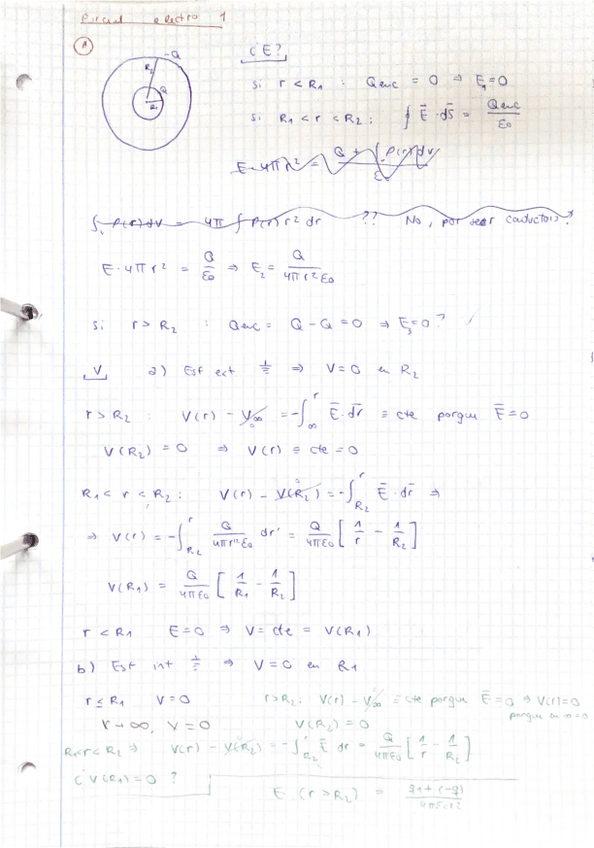 Parcial electro 1
A
-Q
R2
Q
R1
¿E?
si r < R1 : Qenc = 0 ⇒ E1=0
si R1 < r < R2 : ∮ E̅ · dS̅ = Qenc/ε0
E·4πr² = (Q + ∫ρ(r)dV)/ε0
∫ρ(r)dV = 4π ∫ρ(r) r² dr ?? No, por ser conductores!
E·4πr² = Q/ε0 ⇒ E2 = Q/4πr²ε0
si r > R2 : Qenc = Q - Q = 0 ⇒ E3=0?
V a) Esf ext ⏚ ⇒ V=0 en R2
r > R2 : V(r) - V∞ = -∫∞^r E̅·dr̅ = cte porque E̅=0
V(R2) = 0 ⇒ V(r) = cte = 0
R1 < r < R2 : V(r) - V(R2) = -∫R2^r E̅·dr̅ ⇒
⇒ V(r) = -∫R2^r Q/4πr'²ε0 dr' = Q/4πε0 [1/r - 1/R2]
V(R1) = Q/4πε0 [1/R1 - 1/R2]
r < R1 E=0 ⇒ V=cte = V(R1)
b) Esf int ⏚ ⇒ V=0 en R1
r ≤ R1 V=0
r > R2 : V(r) - V∞ = cte porque E̅=0 ⇒ V(r)=0
porque en ∞=0
r→∞, V=0
V(R2)=0
R1<r<R2 ⇒ V(r) - V(R2) = -∫R2^r E̅ dr = Q/4πε0 [1/r - 1/R2]
¿V(R1)=0?
E (r > R2) = (q1+(-q))/4πε0r²